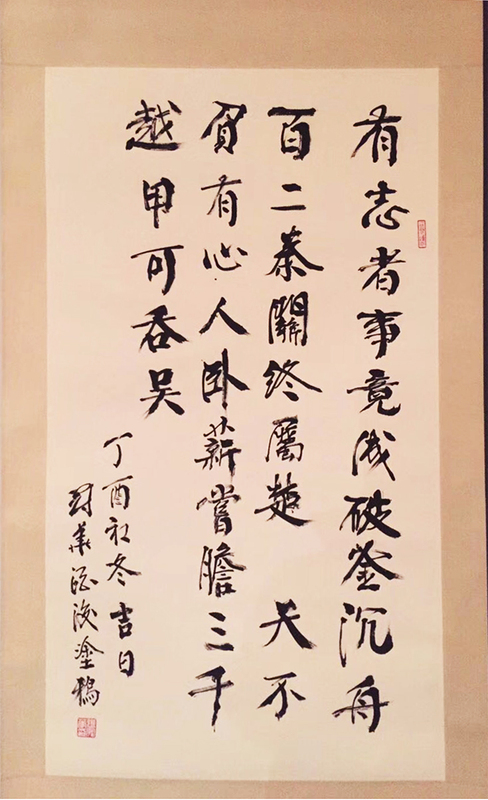 有志者事竟成破釜沉舟
百二秦關終屬楚 天不
負有心人卧薪嘗膽三千
越甲可吞吳
丁酉初冬吉日
華塗鴉